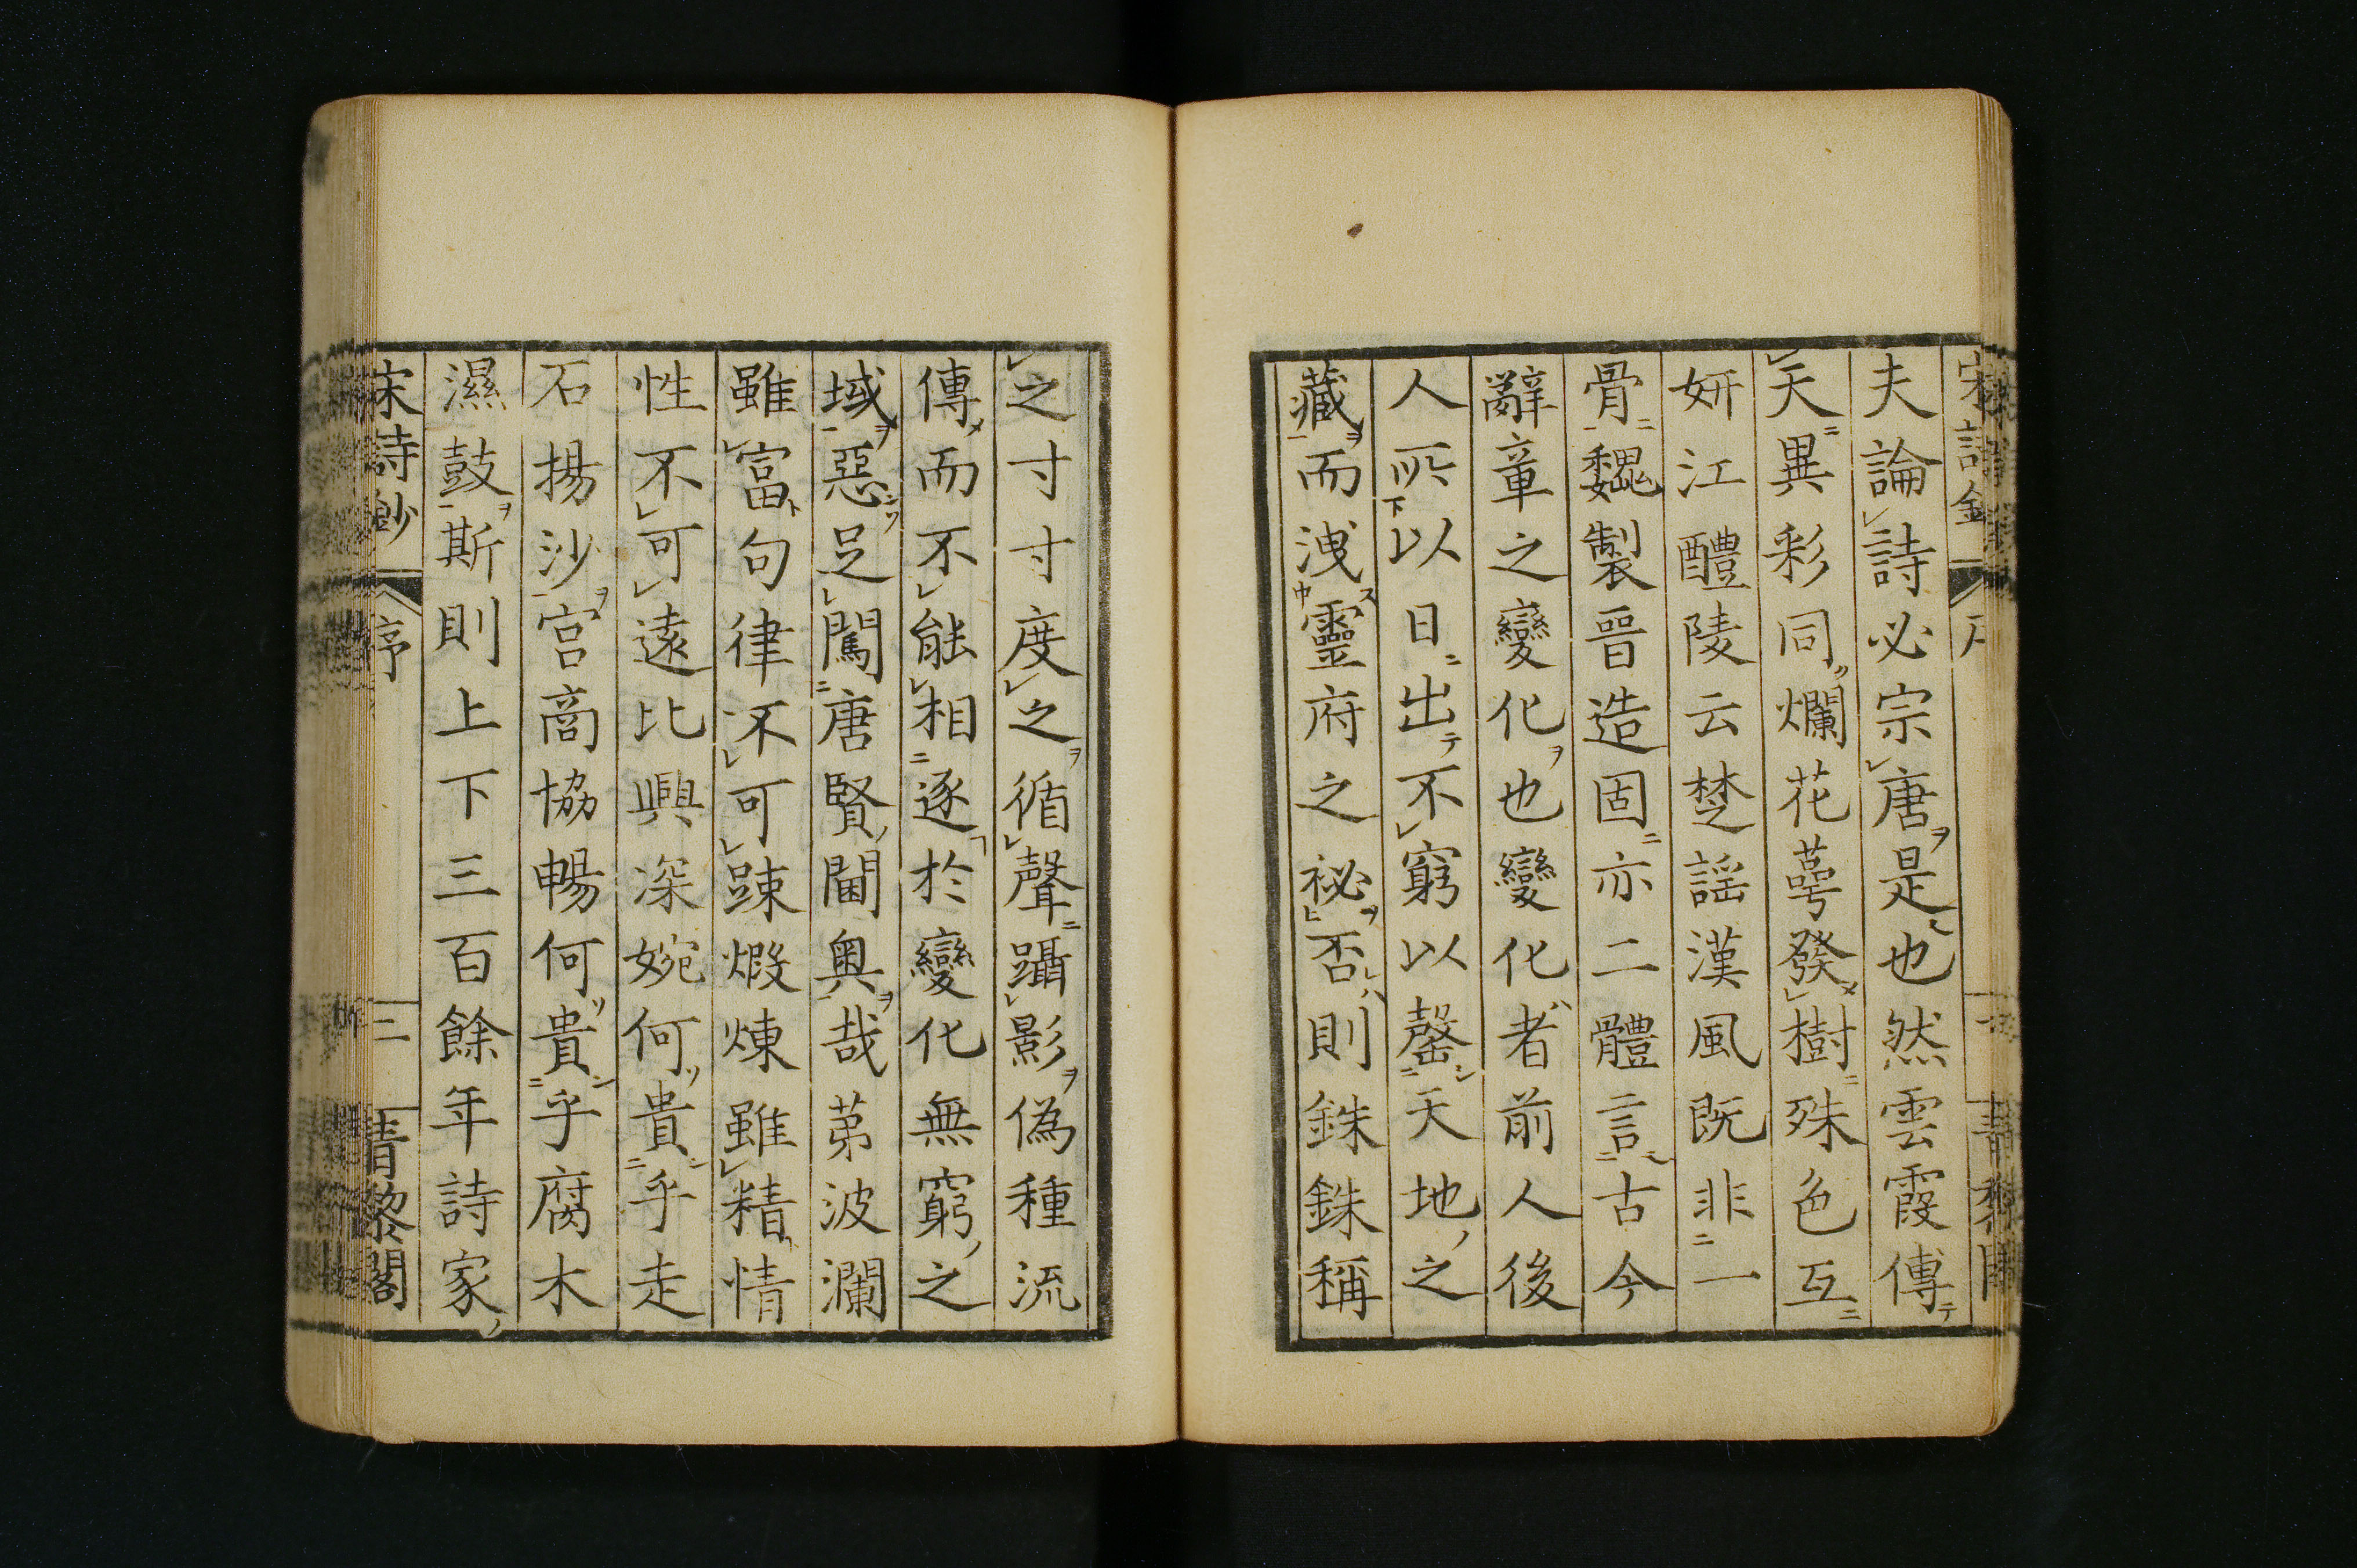 夫論詩必宗唐是也然雲霞傅
天異彩同爛花萼發樹殊色互
妍江醴陵云楚謡漢風既非一
骨魏製晉造固亦二體言古今
辭章之變化也變化者前人後
人所以日出不窮以罄天地之
藏而洩靈府之祕否則銖銖稱
之寸寸度之循聲躡影偽種流
傳而不能相逐於變化無窮之
域惡足闖唐賢閫奥哉苐波瀾
雖富句律不可踈煅煉雖精情
性不可遠比興深婉何貴乎走
石揚沙宫商協暢何貴乎腐木
濕鼓斯則上下三百餘年詩家
宋詩鈔 序 三 青黎閣